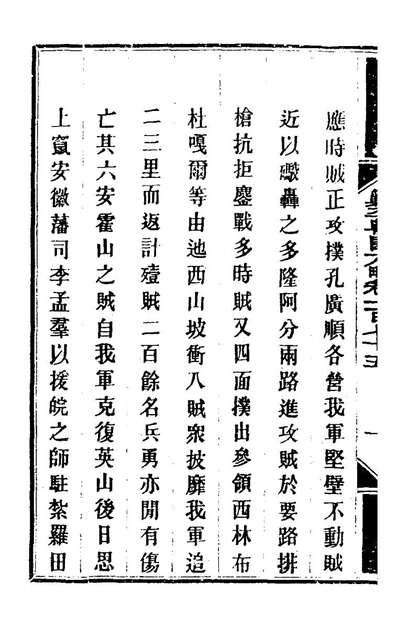 應時賊正攻撲孔廣順各營我軍堅壁不動賊
近以礮轟之多隆阿分兩路進攻賊於要路排
槍抗拒鏖戰多時賊又四面撲出參領西林布
杜嘎爾等由池西山坡衝入賊衆披靡我軍追
二三里而返計殪賊二百餘名兵勇亦間有傷
亡其六安霍山之賊自我軍克復英山後日思
上竄安徽藩司李孟羣以援皖之師駐紮羅田
方略卷一百七十五
一